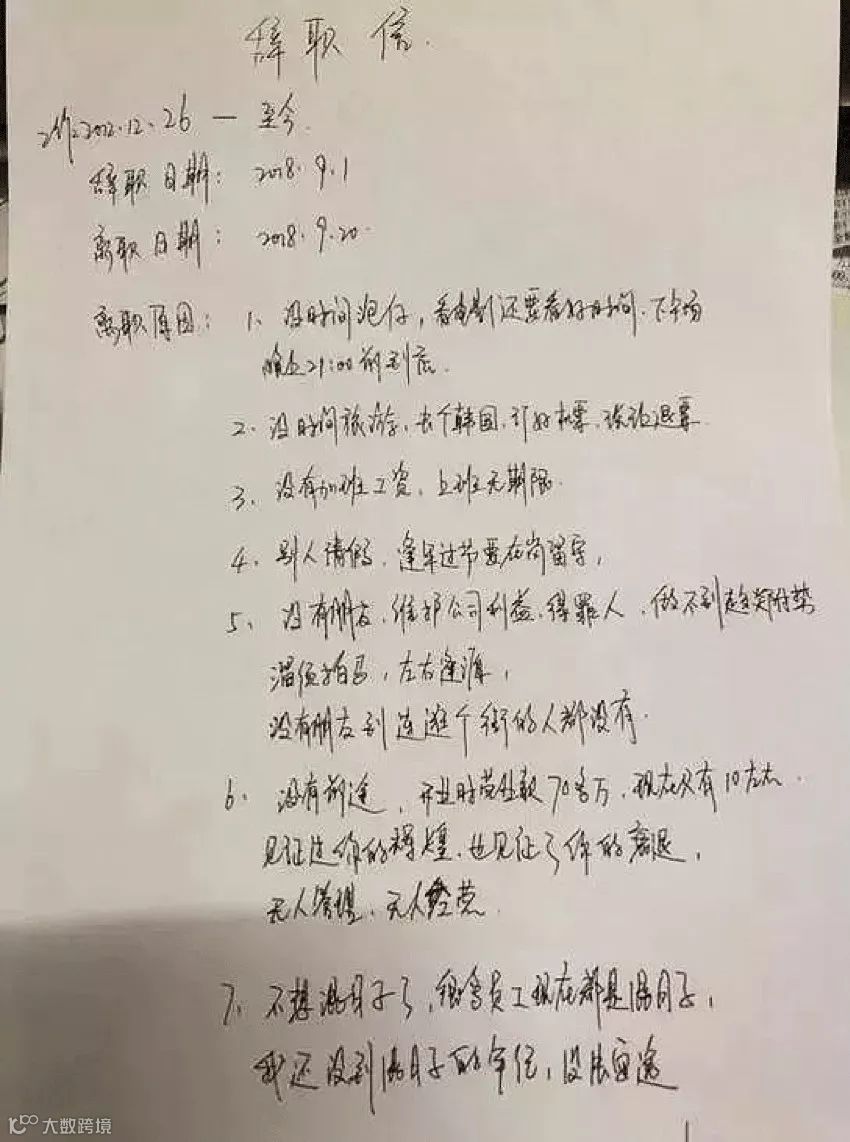 辞职信.
工作2012.12.26 — 至今.
辞职日期: 2018.9.1
离职日期: 2018.9.20.
离职原因: 1、没时间泡仔,看电影还要看好时间.下午场
晚上21:00前到店.
2、没时间旅游,去个韩国,订好机票,
退票.
3、没有加班工资,上班无期限.
4、别人请假,逢年过节要在岗留守,
5、没有朋友,维护公司利益,得罪人,做不到趋炎附势
溜须拍马,左右逢源,
没有朋友到连逛个街的人都没有.
6、没有前途,开业时营业款70多万,现在只有10左右.
见证过你的辉煌,也见证了你的衰退,
无人管理,无人经营.
7、不想混日子了,很多员工现在都是混日子,
我还没到混日子的年纪,没法
大数跨境